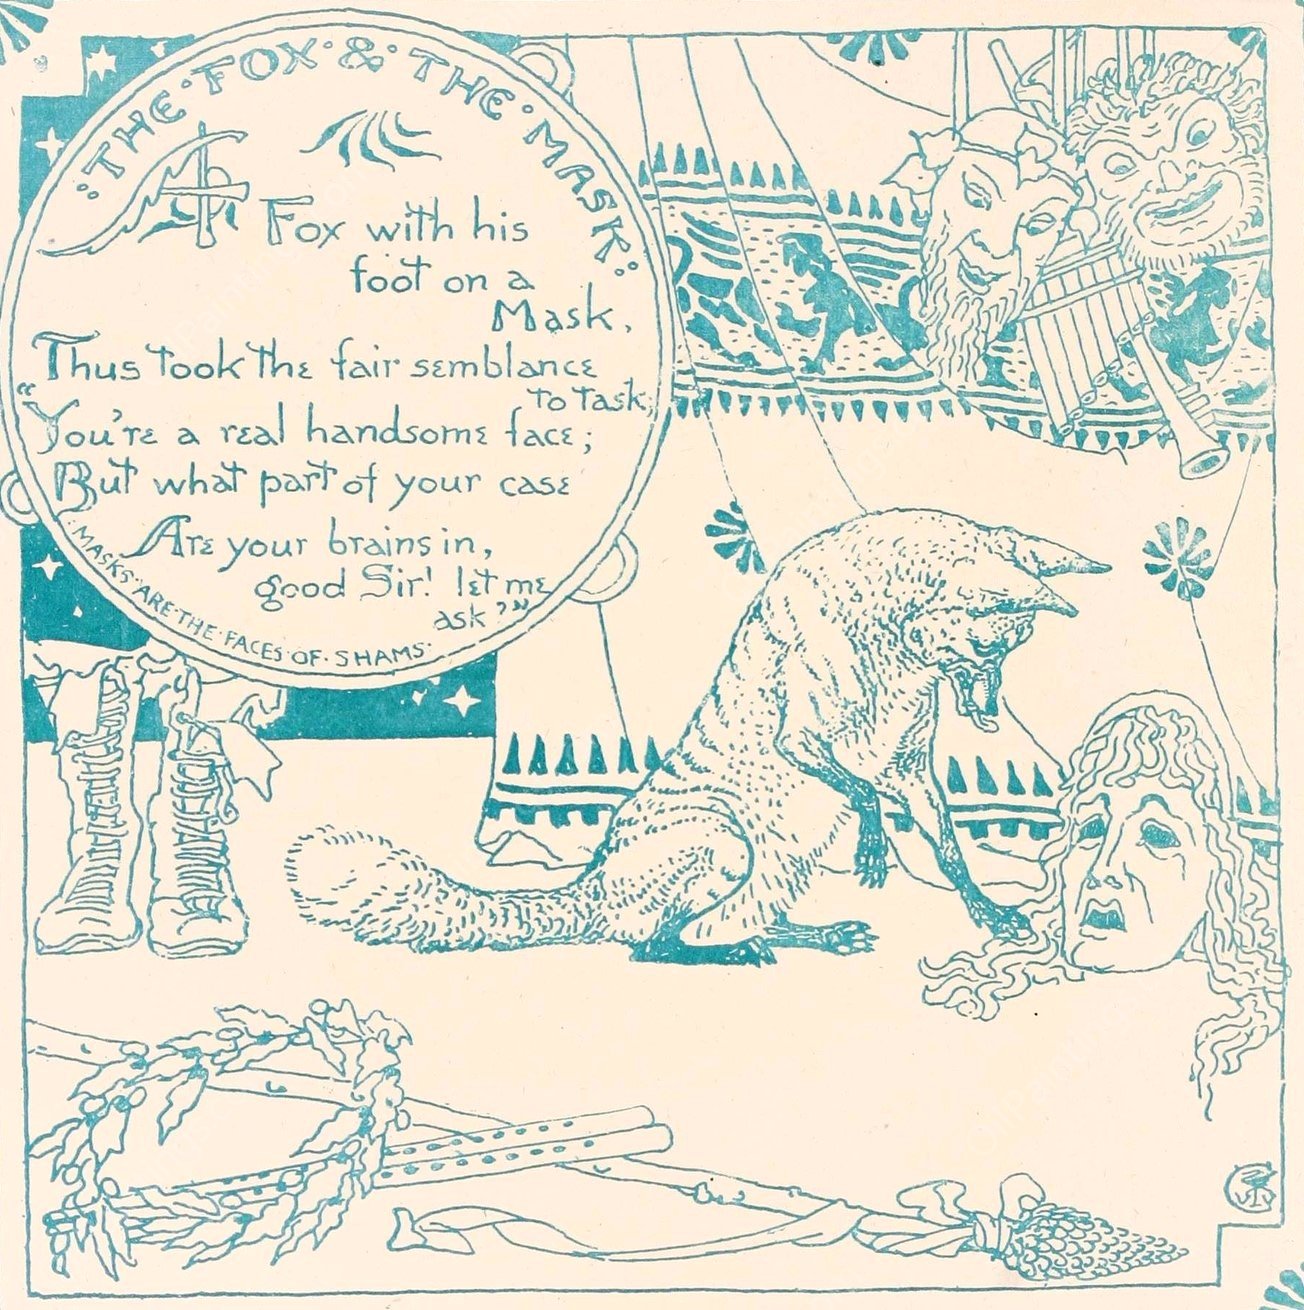 :THE·FOX·&·THE·MASK:
A Fox with his
foot on a
Mask,
Thus took the fair semblance
to task;
"You're a real handsome face;
But what part of your case
Are your brains in,
good Sir! let me
ask?"
·MASKS·ARE·THE·FACES·OF·SHAMS·